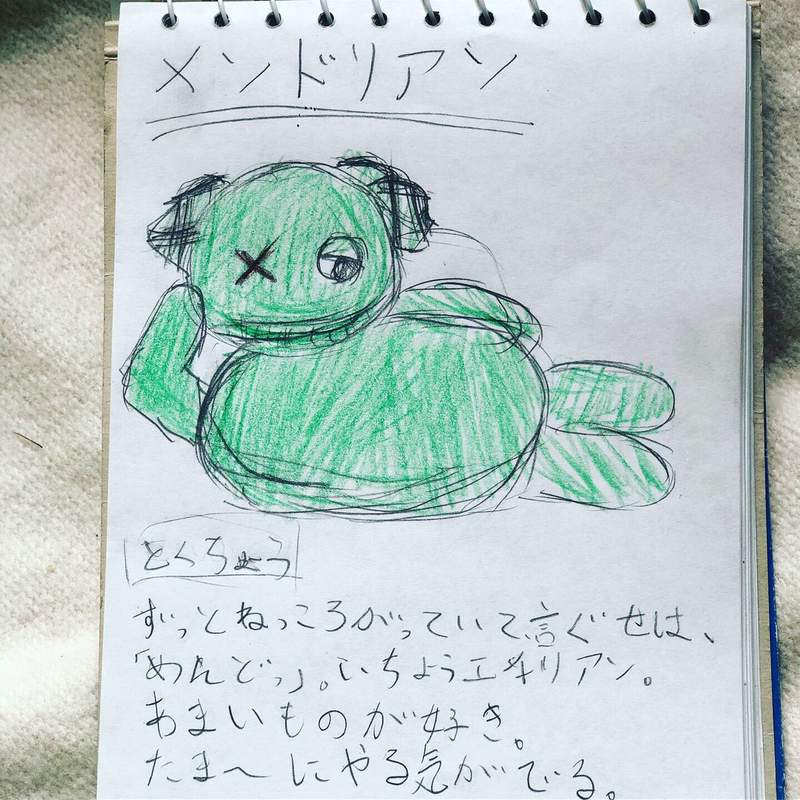 メンドリアン
とくちょう
ずっとねっころがっていて言ぐせは、
「めんどっ」。いちようエイリアン。
あまいものが好き。
たまーにやる気がでる。